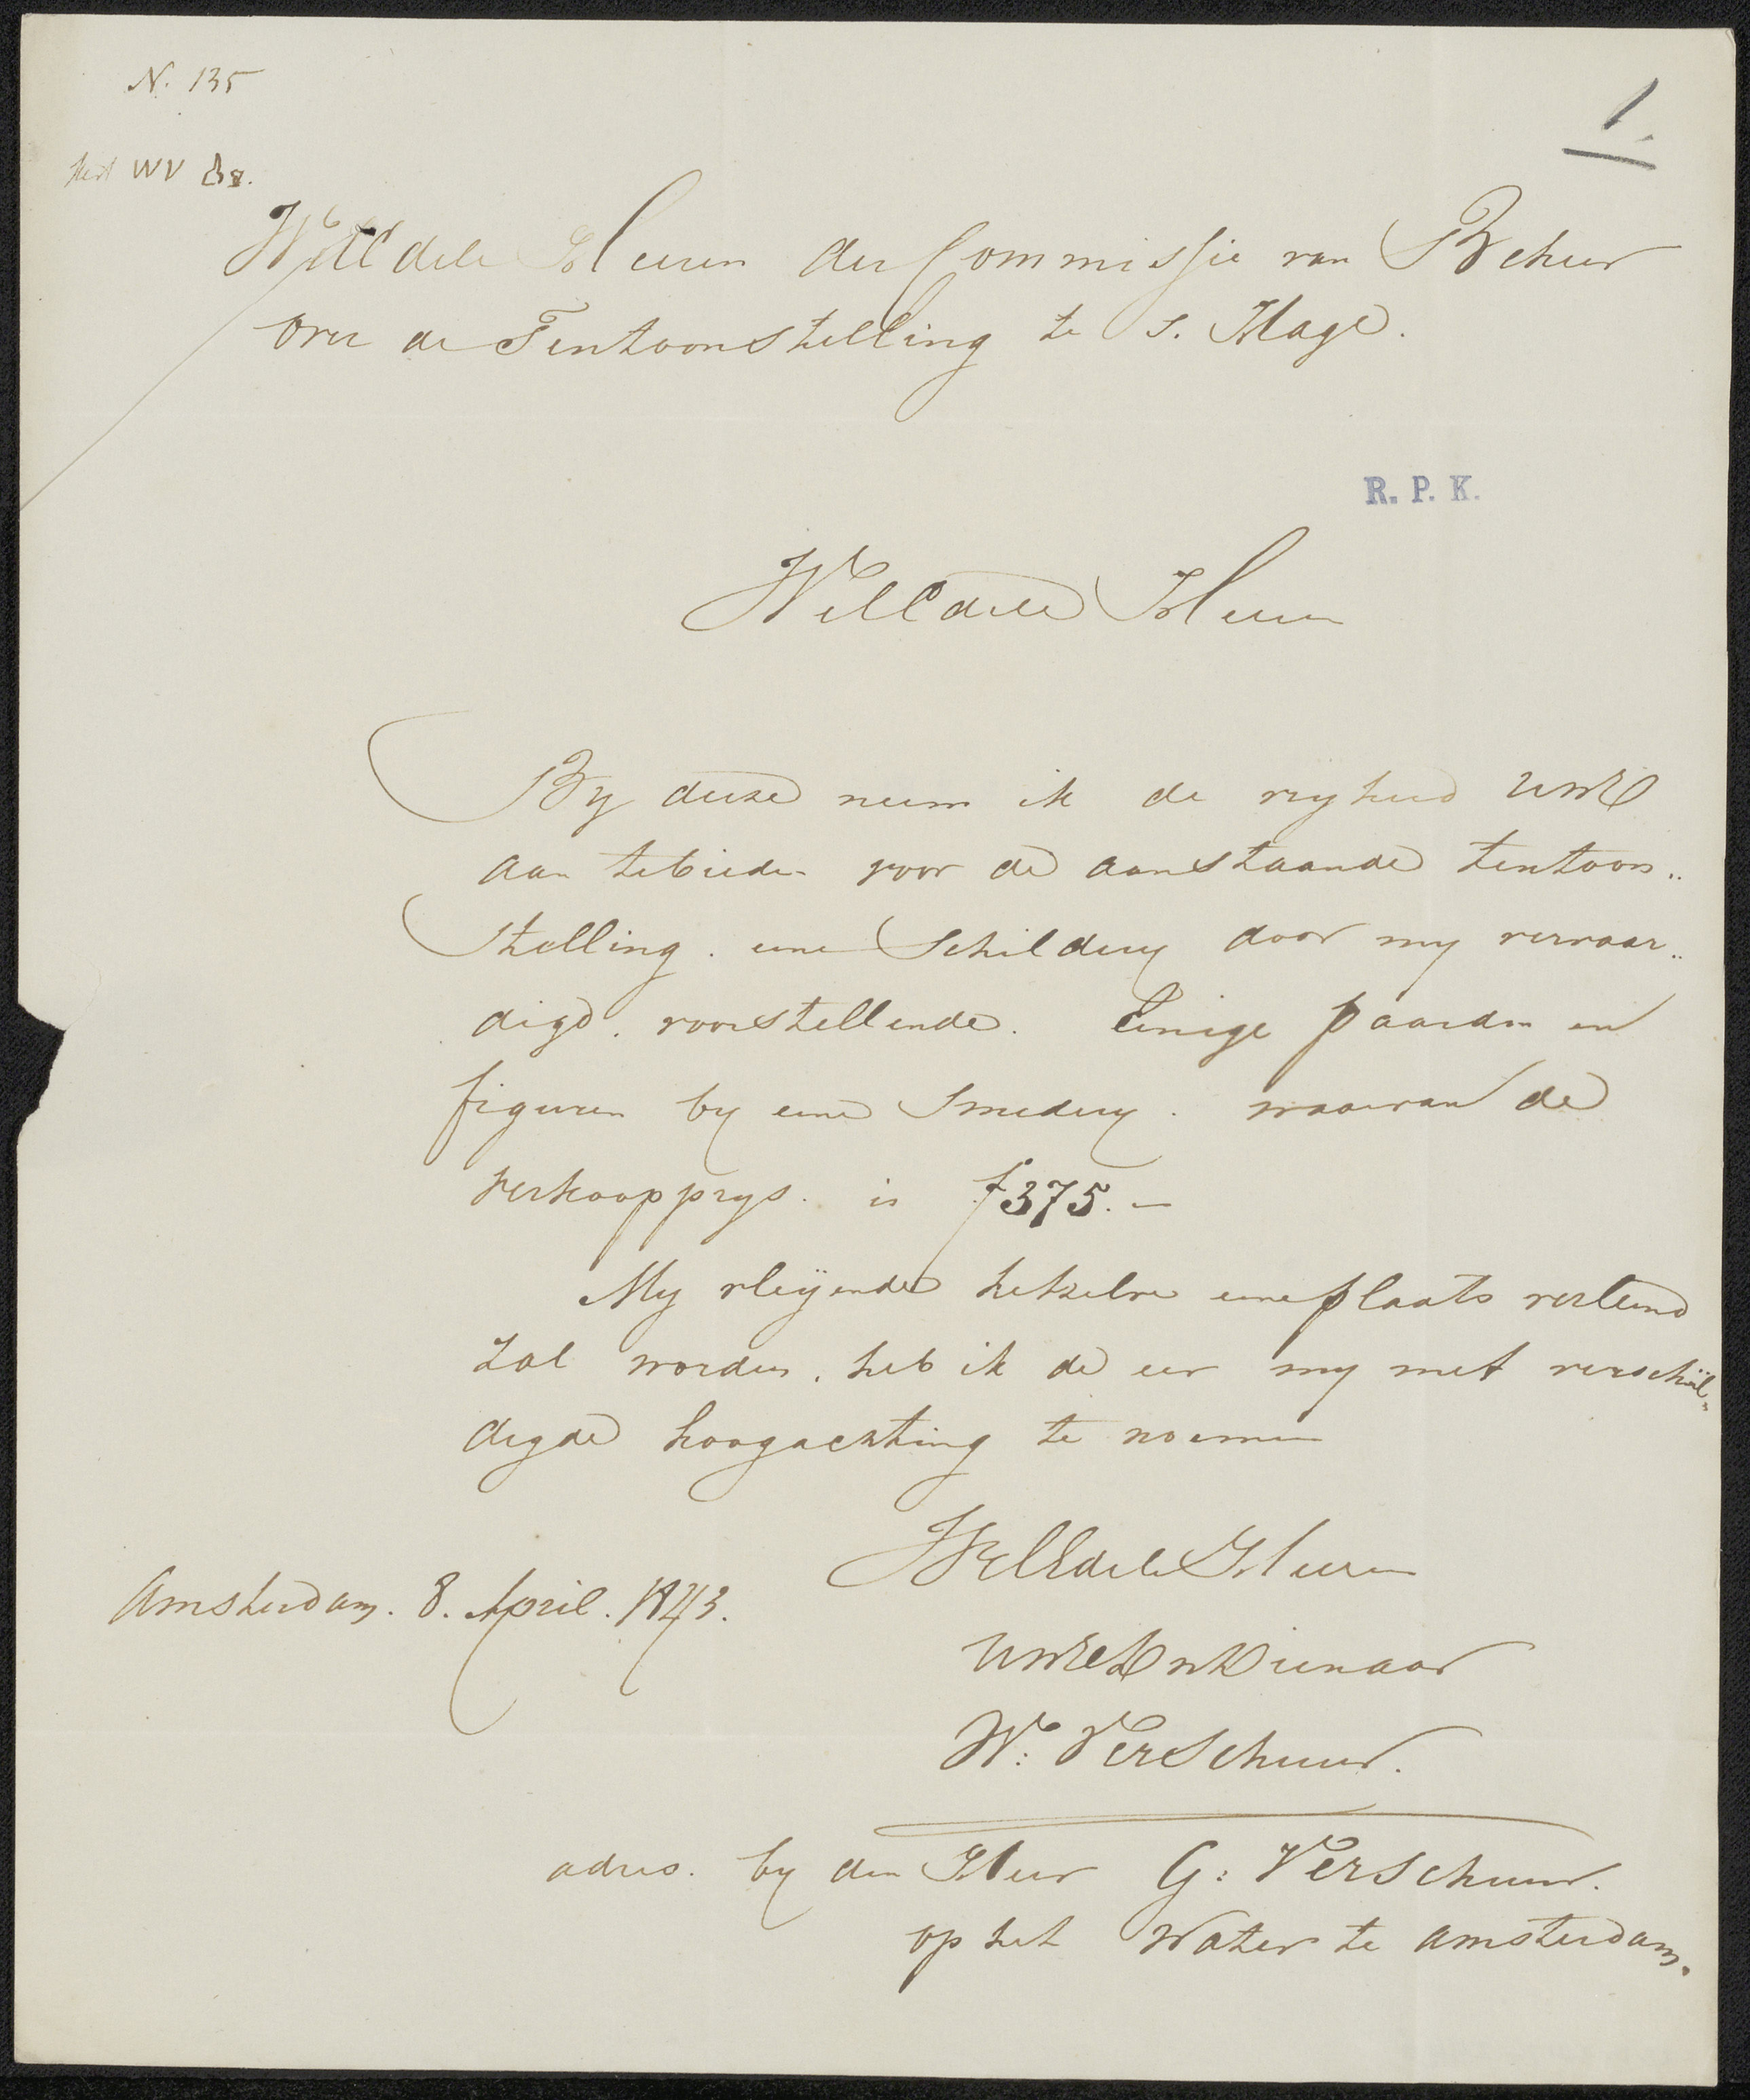 N. 135
1.
WelEdele Heeren der Commissie van Beheer
over de Tentoonstelling te s. Hage.
R. P. K.
WelEdele Heeren
By deeze neem ik de vryheid UWE
aan tebieden voor de aanstaande tentoon..
Stelling. eene Schildery door my vervaar..
digd. voorstellende. Eenige paarden en
figuren by eene Smedery. waarvan de
verkoopprys. is f375.—
My vleÿende hetzelve eene plaats verleend
zal worden, heb ik de eer my met verschül„
digde hoogachting te noemen
WelEdele Heeren
Amsterdam. 8. April. 1843.
Dienaar
W: VerSchuur.
adres. by den Heer G: VerSchuur.
op het Water te Amsterdam.